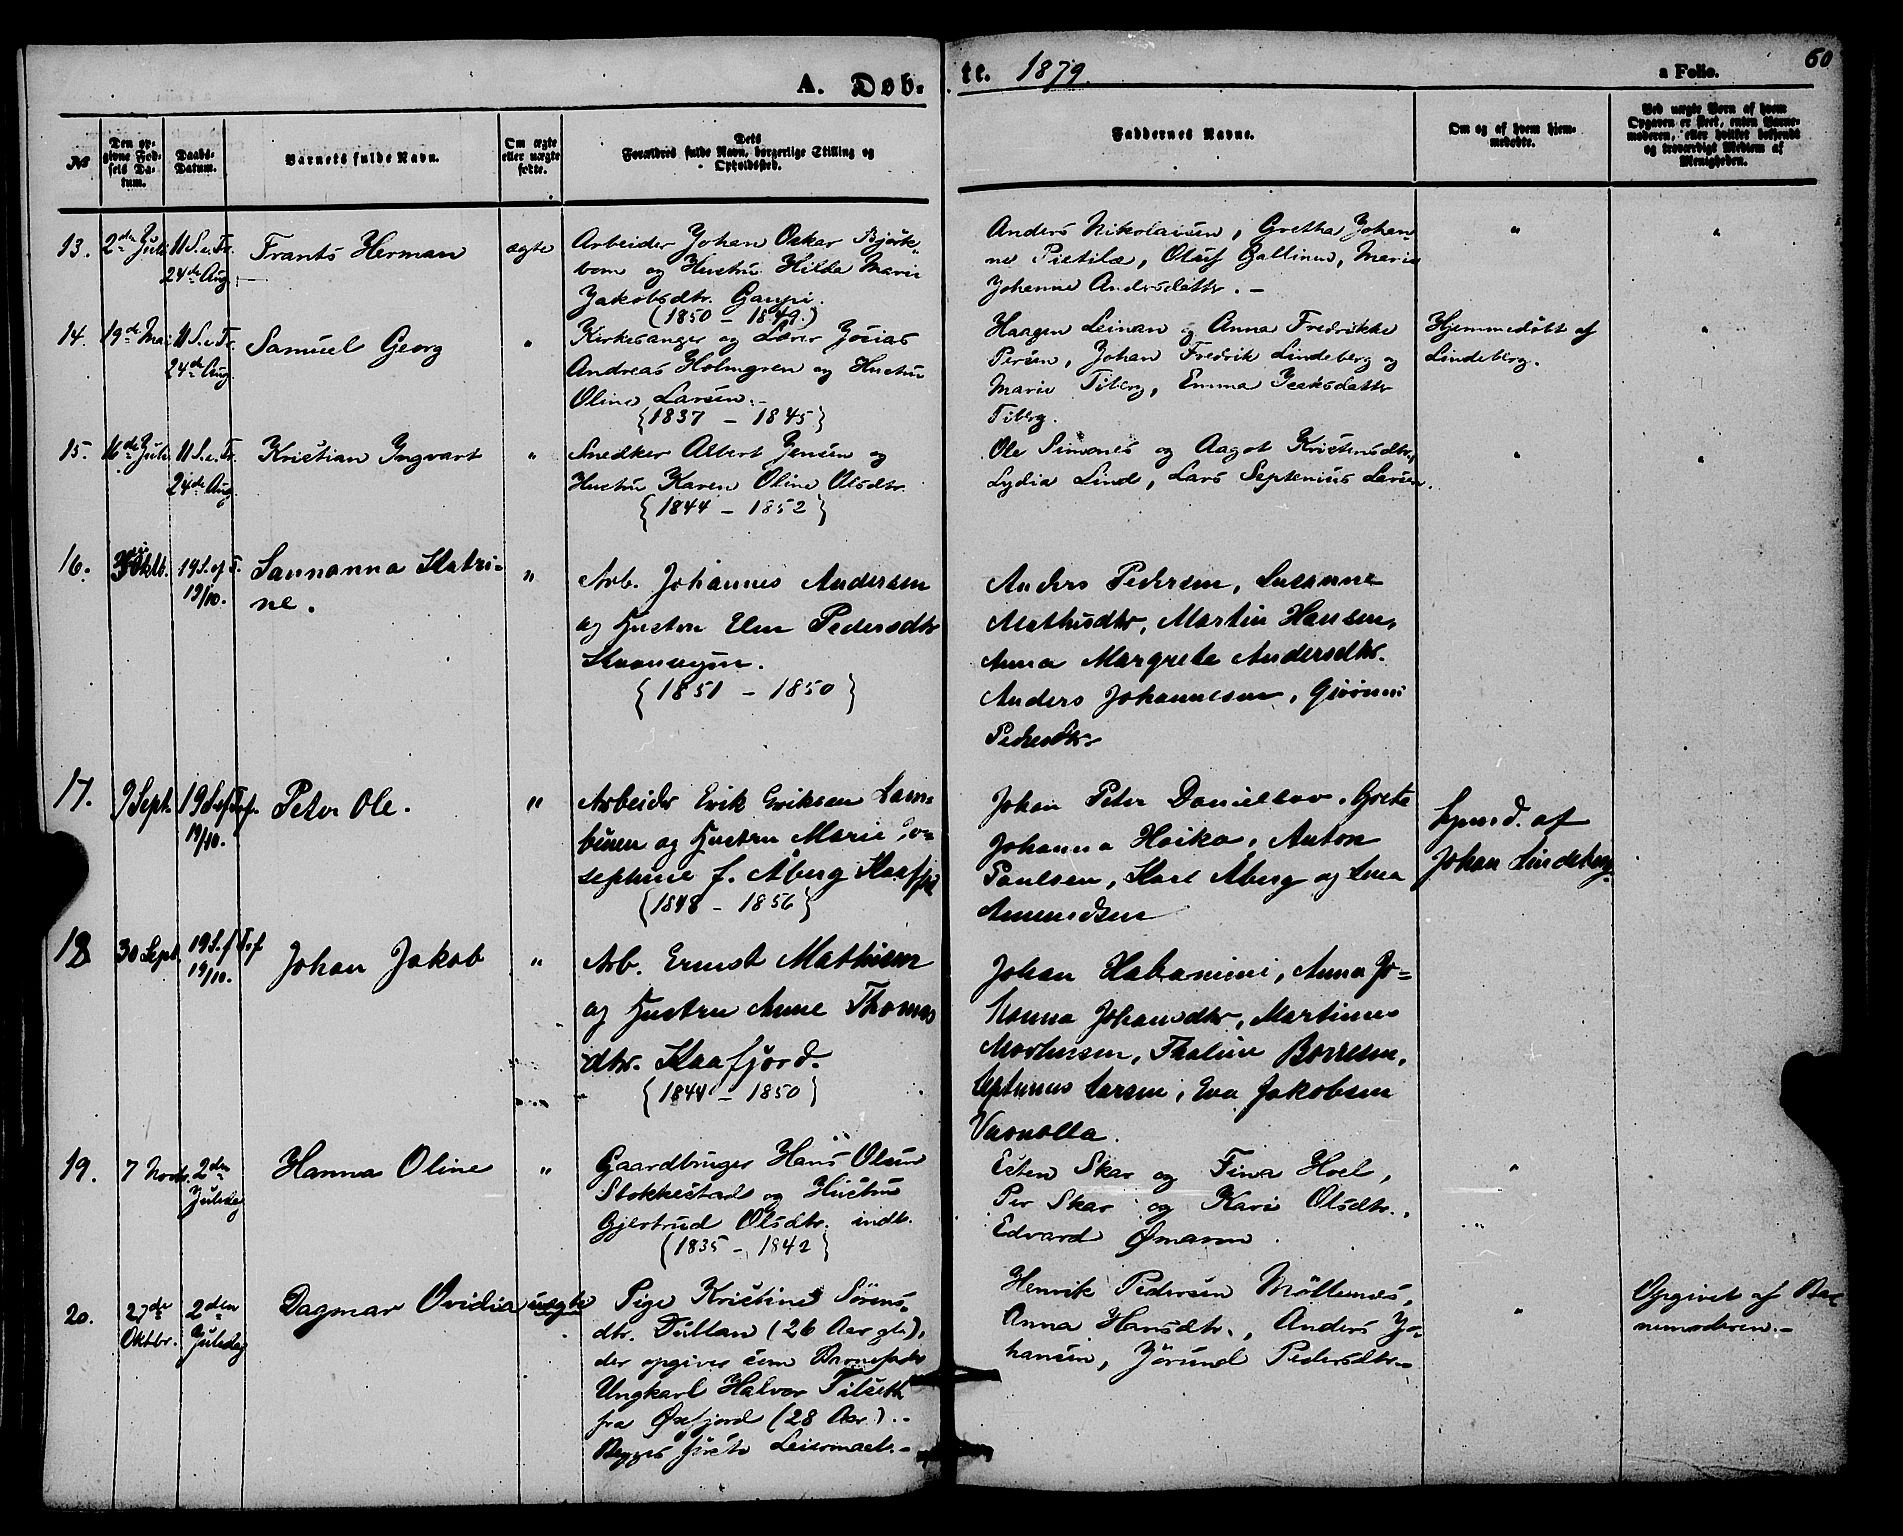 A. Døb-
te. 1879.
a Folio.
60
No
Den opgivne Fødsels Datum.
Daabs-Datum.
Barnets fulde Navn.
Om ægte eller uægte fødte.
Dets Forældres fulde Navn, borgerlige Stilling og Opholdssted.
Faddernes Navne.
Om og af hvem hjemmedøbte.
Ved uægte Børn af hvem Opgaven er skeet, enten Barnemoderen, eller hvilket bekjendt og troværdigt Medlem af Menigheden.
13. 2de Juli 11 S. e. Tr. 24de Aug. Frants Herman ægte
Arbeider Johan Oskar Bjørk-
bom og Hustru Hilda Marie
Jakobsdtr. Gaupi.
(1850 - 1849.)
Anders Nikolaisen, Gretha Johan-
ne Pietilæ, Oluf Ballinen, Marie
Johanne Andersdatter. -
14. 19de Mai 11 S. e. Tr. 24de Aug. Samuel Georg "
Kirkesanger og Lærer Josias
Andreas Holmgren og Hustru
Oline Larsen. -
{1837 - 1845}
Haagen Leinan og Anna Fredrikke
Persen, Johan Fredrik Lindeberg og
Marie Tiberg, Emma Isaksdatter
Tiberg.
Hjemmedøbt af
Lindeberg.
15. 16de Juli 11 S. e. Tr. 24de Aug. Kristian Ingvart "
Snedker Albert Jensen og
Hustru Karen Oline Olsdtr.
{1844 - 1852}
Ole Simones og Aagot Kristensdtr.,
Lydia Lind, Lars Septenius Larsen.
16. Oktb. 19 S. ef T. 19/10. Sannanna Katri-
ne.
"
Arb. Johannes Andersen
og Hustru Elen Pedersdtr
{1851 - 1850}
Anders Pedersen, Susanne
Mathisdtr, Martin Hansen,
Anna Margrete Andersdtr.
Anders Johannesen,
Pedersdtr
17. 9 Sept. 19 S. ef Tref. 19/10. Peter Ole. "
Arbeider Erik Eriksen Lam-
binen og Hustru Marie Jo-
sephine f. Åberg Kaafjd
{1848 - 1856}
Johan Peter Daniellov, Greta
Johanna Heika, Anton
Paulsen, Karl Åberg og Lina
Amundsen
Hjemd. af
Johan Lindeberg.
18 30 Sept. 19 S. f Tref 19/10. Johan Jakob "
Arb. Ernst Mathisen
og Hustru Anne Thomas
dtr. Kaafjord.
{1844 - 1850}
Johan Habaniemi, Anna Jo-
hanna Johansdtr, Martinus
Mortensen, Thaline Borresen,
Septimus Larsen, Eva Jakobsen
19. 7 Novbr. 2den Juledag Hanna Oline "
Gaardbruger Hans Olsen
Stokkestad og Hustru
Gjertrud Olsdtr. indt.
{1835 - 1842}
Esten Skar og Fina Hoel,
Per Skar og Kari Olsdtr.,
Edvard
20. 27de Oktbr. 2den Juledag Dagmar Ovidia uægte
Pige Kristine Sörens-
dtr. Tullan (26 Aar gl.),
der opgiver som Barnefader
Ungkarl Halvor Tilseth
fra Øxfjord (28 Aar). -
Begges første Leiermaal. -
Henrik Pedersen Möllenes,
Anna Hansdtr., Anders Jo-
hansen, Jörund Pedersdtr. -
Opgivet af Bar-
nemoderen. -